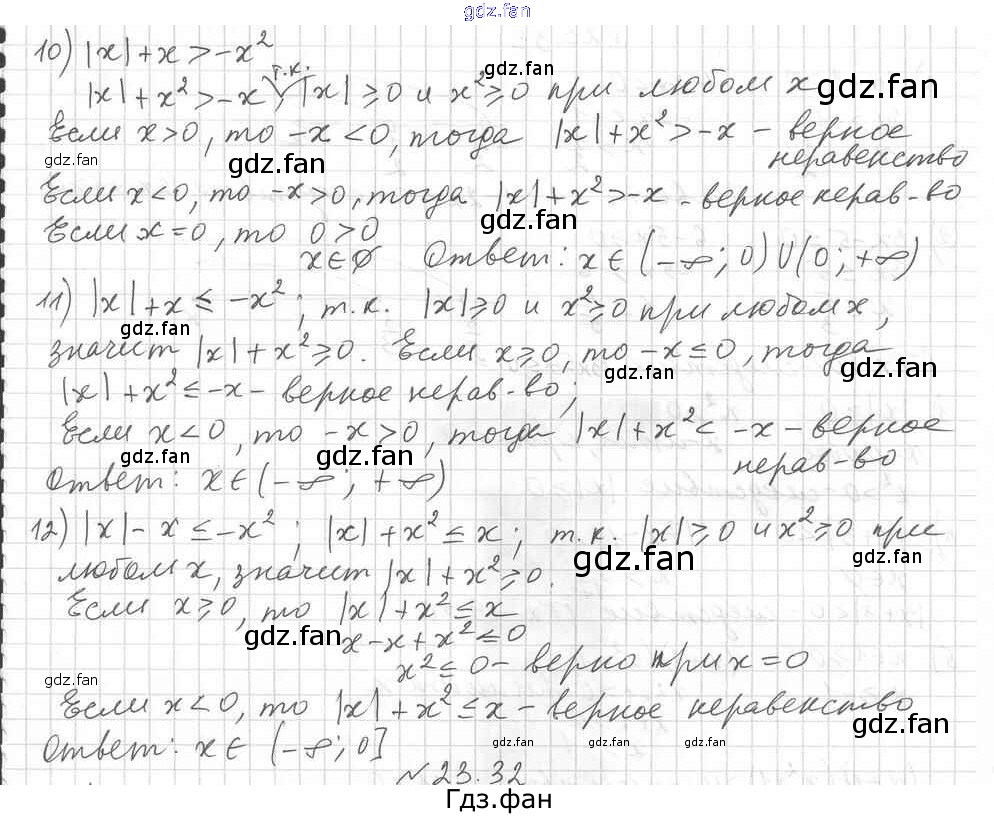 gdz.fan
10) |x| + x > -x²
т.к.
|x| + x² > -x, |x| ⩾ 0 и x² ⩾ 0 при любом x
gdz.fan
gdz.fan
Если x > 0, то -x < 0, тогда |x| + x² > -x - верное
неравенство
gdz.fan
gdz.fan
Если x < 0, то -x > 0, тогда |x| + x² > -x - верное нерав-во
gdz.fan
Если x = 0, то 0 > 0
x ∈ ∅ Ответ: x ∈ (-∞; 0) ∪ (0; +∞)
11) |x| + x ≤ -x²; т.к. |x| ⩾ 0 и x² ⩾ 0 при любом x,
gdz.fan
gdz.fan
значит |x| + x² ⩾ 0. Если x ⩾ 0, то -x ≤ 0, тогда
gdz.fan
gdz.fan
|x| + x² ≤ -x - верное нерав-во;
Если x < 0, то -x > 0, тогда |x| + x² < -x - верное
нерав-во
gdz.fan
gdz.fan
Ответ: x ∈ (-∞; +∞)
12) |x| - x ≤ -x²; |x| + x² ≤ x; т.к. |x| ⩾ 0 и x² ⩾ 0 при
gdz.fan
gdz.fan
любом x, значит |x| + x² ⩾ 0.
Если x ⩾ 0, то |x| + x² ≤ x
gdz.fan
x - x + x² ≤ 0
x² ≤ 0 - верно при x = 0
gdz.fan
gdz.fan
Если x < 0, то |x| + x² ≤ x - верное неравенство
gdz.fan
Ответ: x ∈ (-∞; 0]
gdz.fan
gdz.fan
№23.32
Гдз.фан